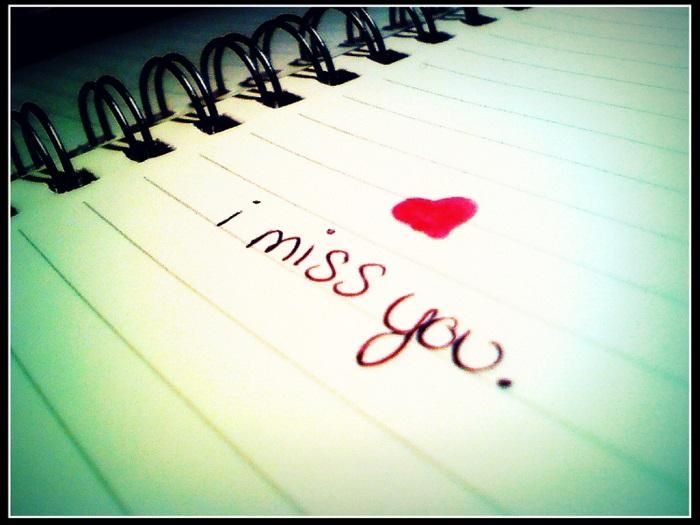 i miss you.